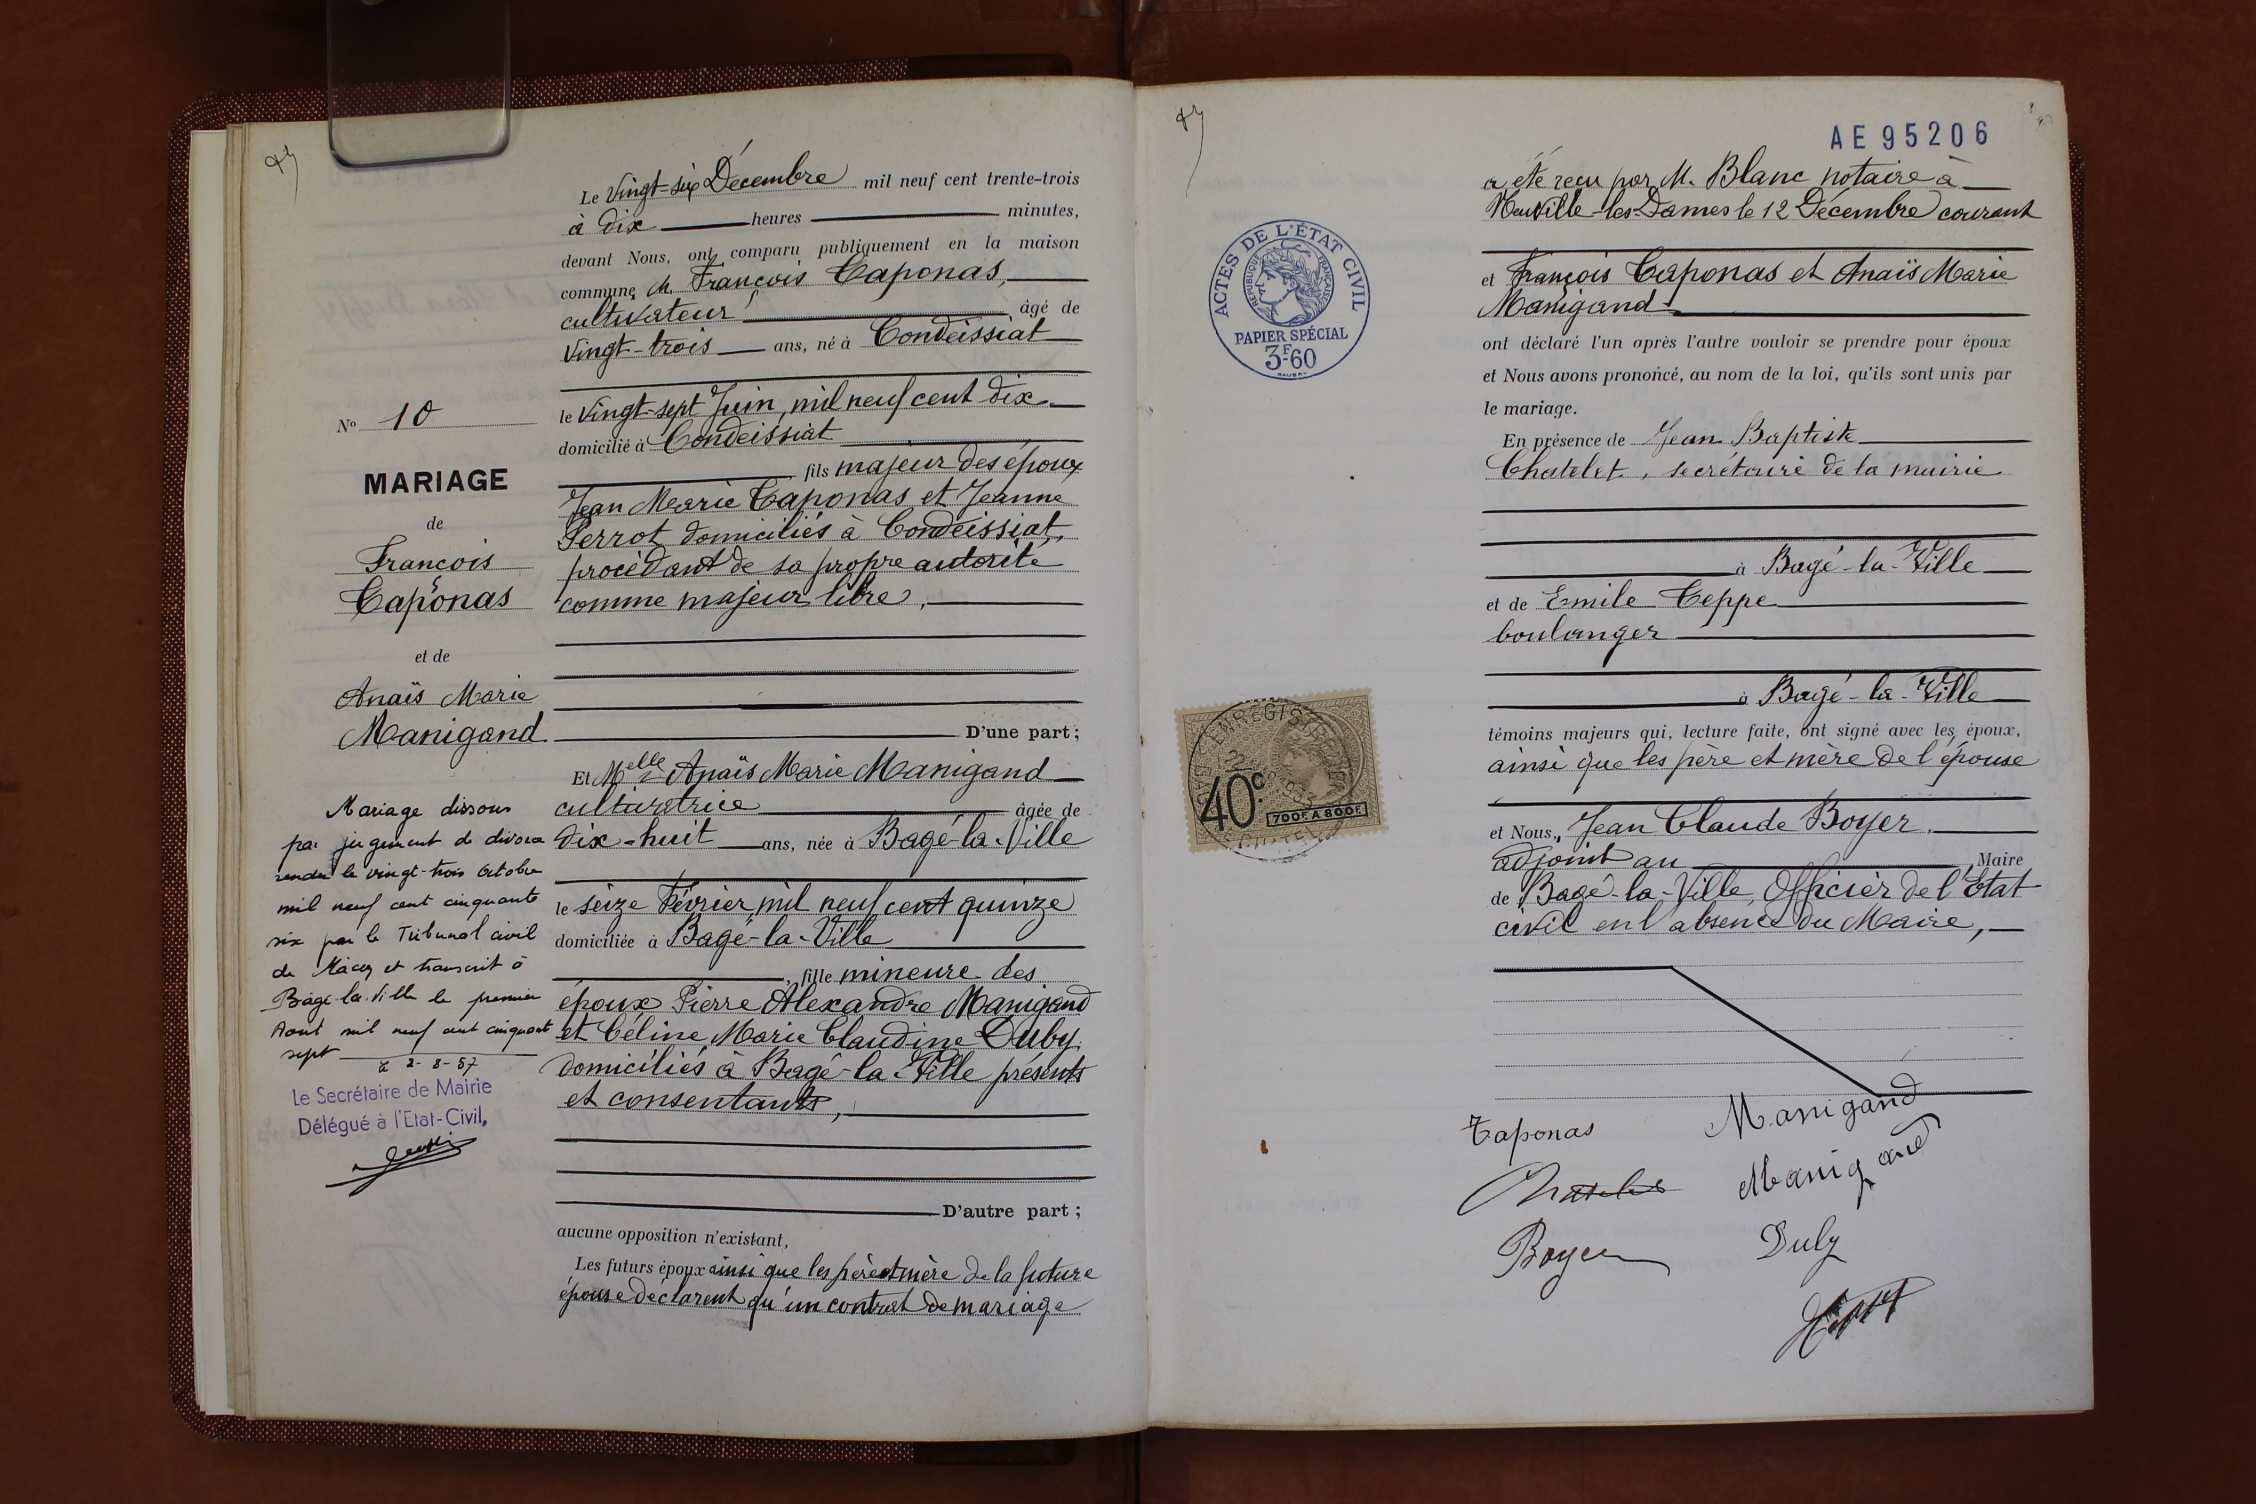 Le Vingt-six Décembre mil neuf cent trente-trois
à dix heures minutes,
devant Nous, ont comparu publiquement en la maison
commune, M. François Taponas,
cultivateur âgé de
vingt-trois ans, né à Condeissiat
le vingt-sept Juin, mil neuf cent dix
domicilié à Condeissiat
fils majeur des époux
Jean Marie Taponas et Jeanne
Perrot domiciliés à Condeissiat,
procèdant de sa propre autorité
comme majeur libre,
D'une part;
Et Melle Anaïs Marie Manigand
cultivatrice âgée de
dix-huit ans, née à Bagé-la-Ville
le seize Février, mil neuf cent quinze
domiciliée à Bagé-la-Ville
fille mineure des
époux Pierre Alexandre Manigand
et Céline Marie Claudine Duby,
domiciliés à Bagé-la-Ville présents
et consentants,
D'autre part;
aucune opposition n'existant,
Les futurs époux ainsi que les père et mère de la future
épouse déclarent qu'un contrat de mariage
No 10
MARIAGE
de
François
Taponas
et de
Anaïs Marie
Manigand
Mariage dissous
par jugement de divorce
rendu le vingt-trois Octobre
mil neuf cent cinquante
six par le Tribunal civil
de Mâcon et transcrit à
Bâgé-la-Ville le premier
Aout mil neuf cent cinquante
sept
Le 2-8-57
Le Secrétaire de Mairie
Délégué à l'Etat-Civil,
AE 95206
a été reçu par M. Blanc notaire à
Neuville-les-Dames le 12 Décembre courant
et François Taponas et Anaïs Marie
Manigand
ont déclaré l'un après l'autre vouloir se prendre pour époux
et Nous avons prononcé, au nom de la loi, qu'ils sont unis par
le mariage.
En présence de Jean Baptiste
Chatelet, secrétaire de la mairie
à Bagé-la-Ville
et de Emile Teppe
boulanger
à Bagé-la-Ville
témoins majeurs qui, lecture faite, ont signé avec les époux,
ainsi que les père et mère de l'épouse
et Nous, Jean Claude Boyer,
adjoint au Maire
de Bagé-la-Ville, Officier de l'Etat
civil en l'absence du Maire,
Taponas
Manigand
Chatelet
Manigand
Boyer
Duby
ACTES DE L'ÉTAT CIVIL
RÉPUBLIQUE FRANÇAISE
PAPIER SPÉCIAL
3F60
ENREGISTREMENT
40c
700F. A 800F.